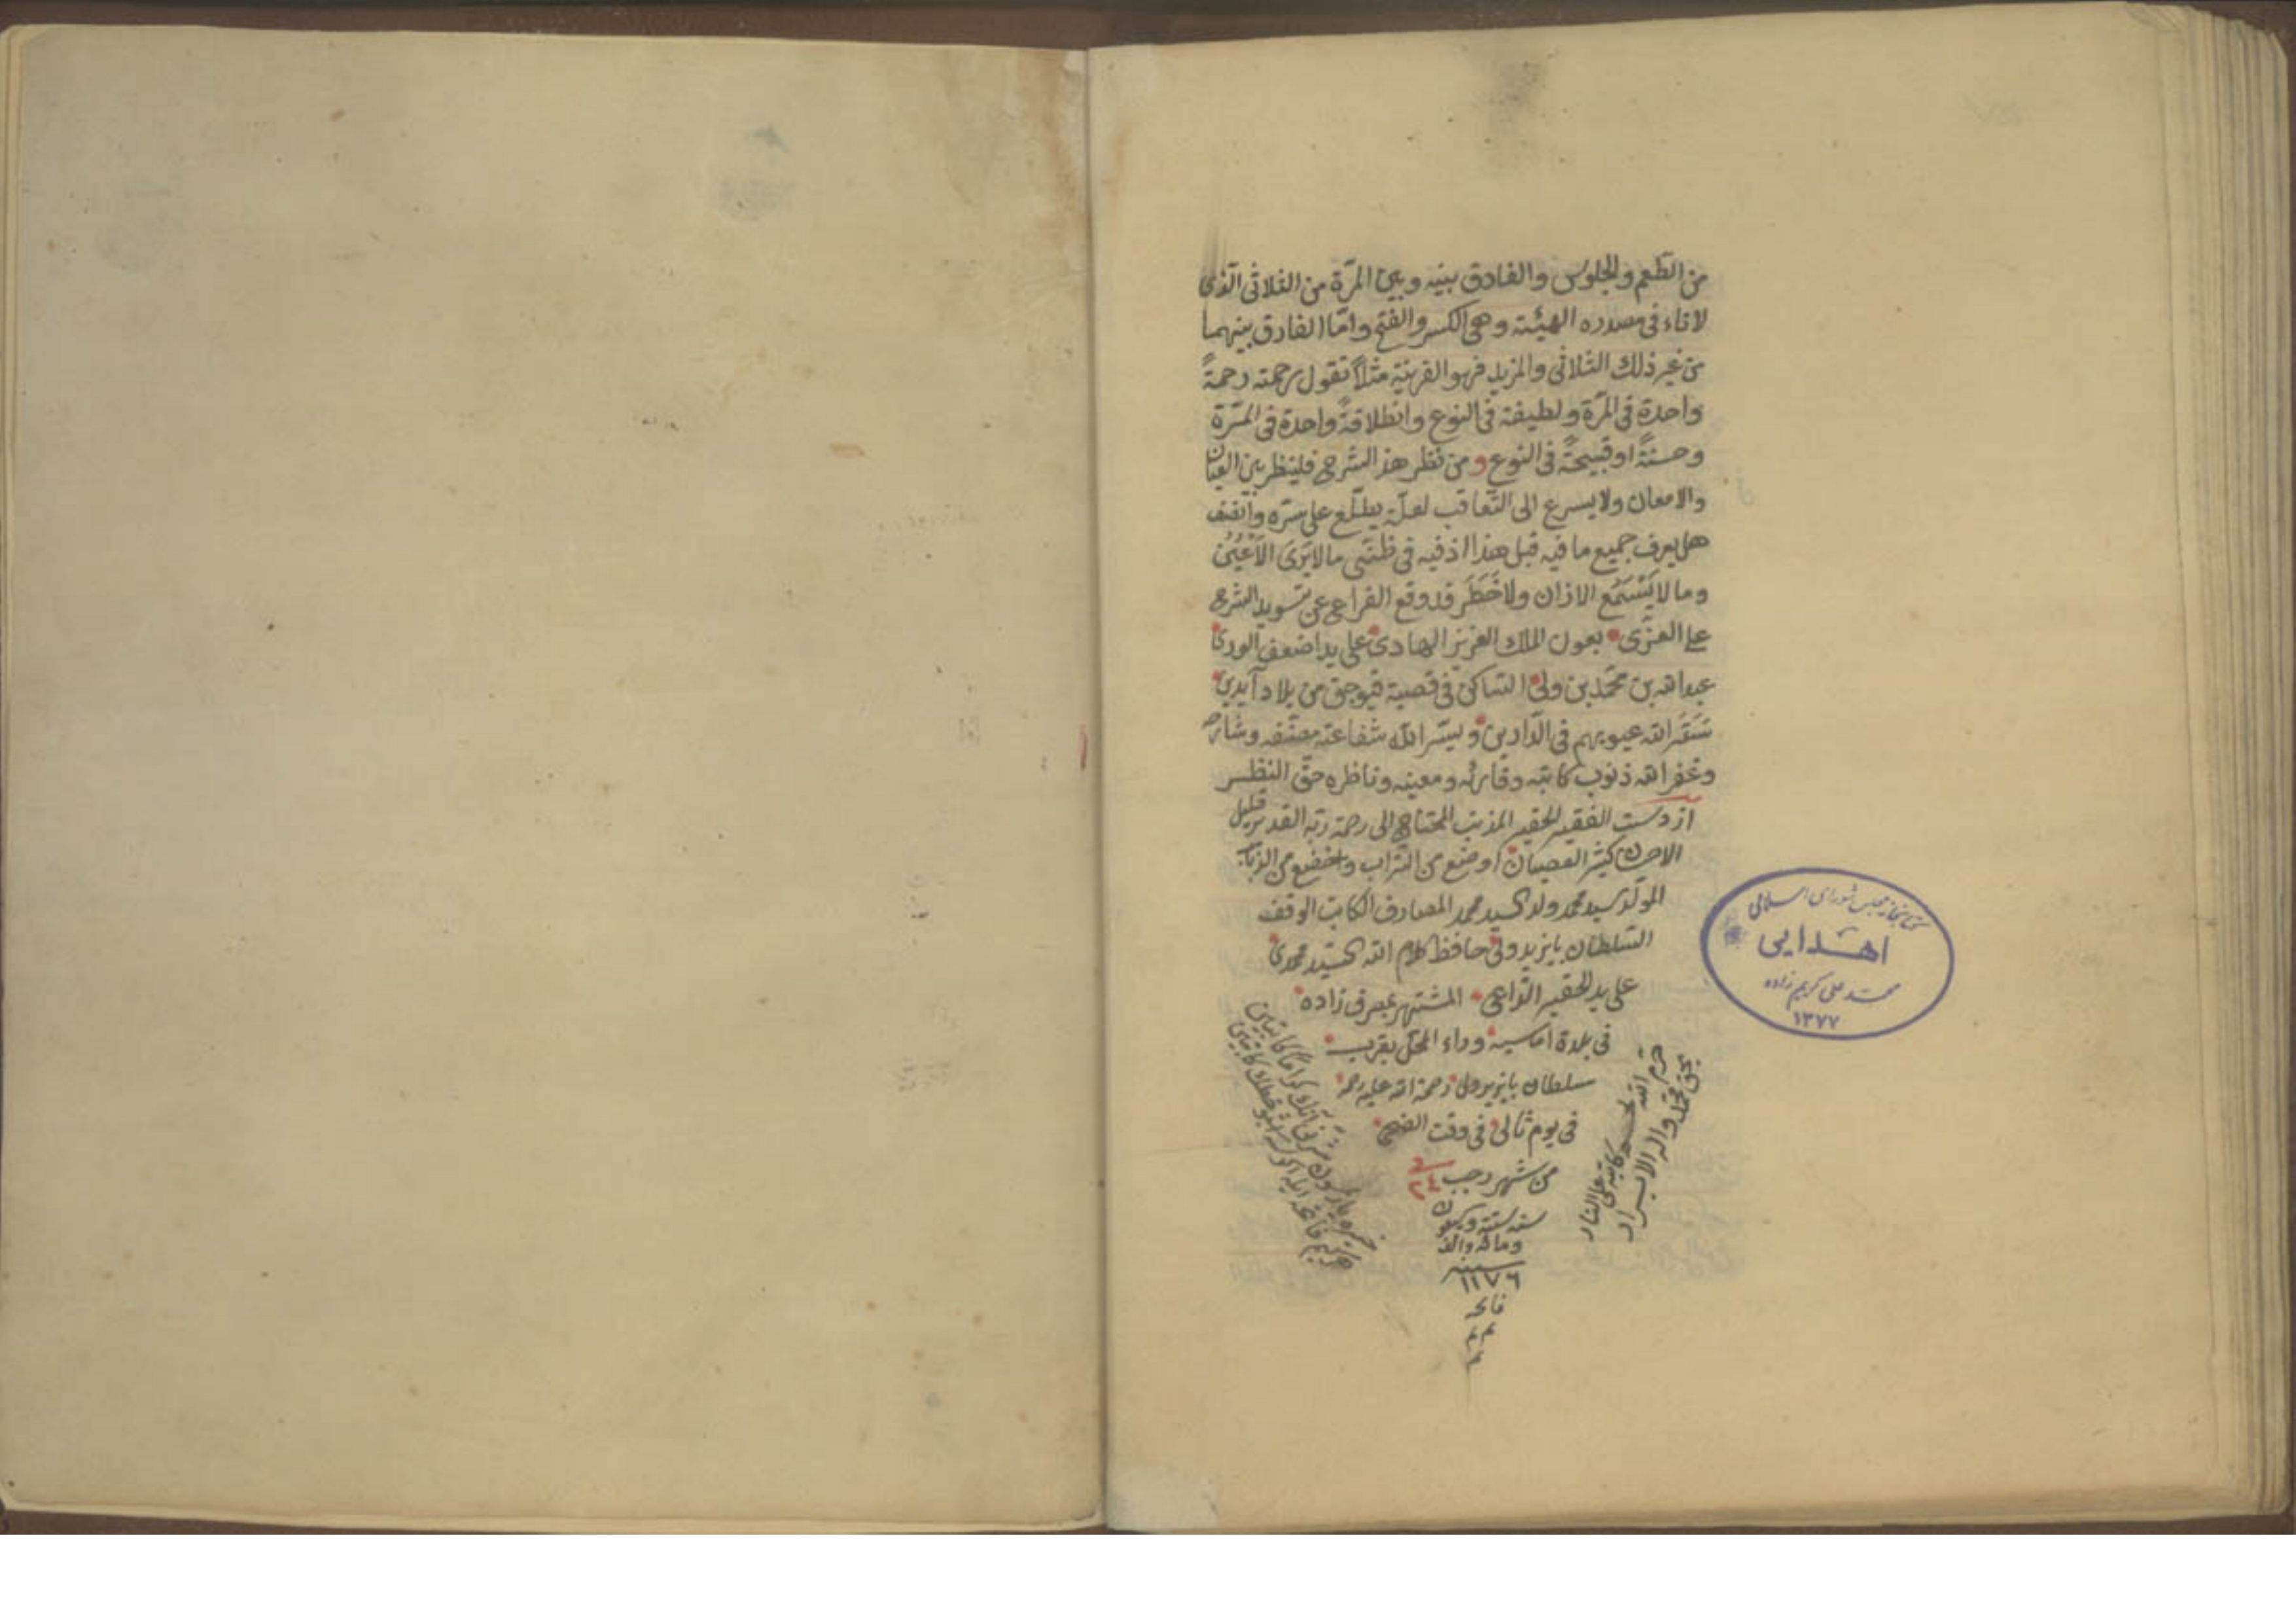 من الطعم والجلوس والفارق بينه وبين المرّة من الثلاثى الّذى
لا تاء فى مصدره الهيئة وهى الكسر والفتح وامّا الفارق بينهما
من غير ذلك الثلاثى والمزيد فهو القرينة مثلاً تقول رحمته رحمةً
واحدة فى المرّة ولطيفة فى النوع وانطلاقةً واحدة فى المرّة
وحسنةً او قبيحةً فى النوع ومن نظر هذ الشرح فلينظر بعين العيان
والامعان ولا يسرع الى التّعاقب لعلّه يطلّع على سرّه
هل يعرف جميع ما فيه قبل هذا اذ فيه فى ظنّى ما لا يَرَى الاَعْيُن
وما لا يَسْمَع الاذان ولا خَطَر قد وقع الفراغ عن تسويد الشرح
على العزّى بعون الملك العزيز الهادى على يد اضعف الورى
عبد الله بن محمّد بن ولى السّاكن فى قصبة قيوجق من بلاد آيدين
سَتَرَ الله عيوبهم فى الدّارين ويسّر الله شفاعة مصنّفه وشارحه
وغفر الله ذنوب كاتبه وقارئه ومعينه وناظره حقّ النظر
از دست الفقير الحقير المذنب المحتاج الى رحمة ربّه القدير قليل
الاحسان كثير العصيان اوضع من التراب واخضع من
المولّد سيد محمد ولد السيد محمد المصارف الكاتب الوقف
السّلطان بايزيد ولى حافظ كلام الله السيّد محمدى
على يد الحقير الدّاعى المشتهر بمصرفزاده
فى بلدة اماسيه وراء المحلّ بقرب
سلطان بايزيد ولى رحمة الله عليه رحمة
فى يوم ثالى فى وقت الضحى
من شهر رجب ٢٤
سنه ستة وسبعون
ومائه والف
سنه ١١٧٦
فاتحه
م م
م
حرّم الله لحم كاتبه على النار
بحقّ محمّد واله الابرار
كتابخانه مجلس شوراى اسلامى
اهدايى
محمد على كريم زاده
١٣٧٧